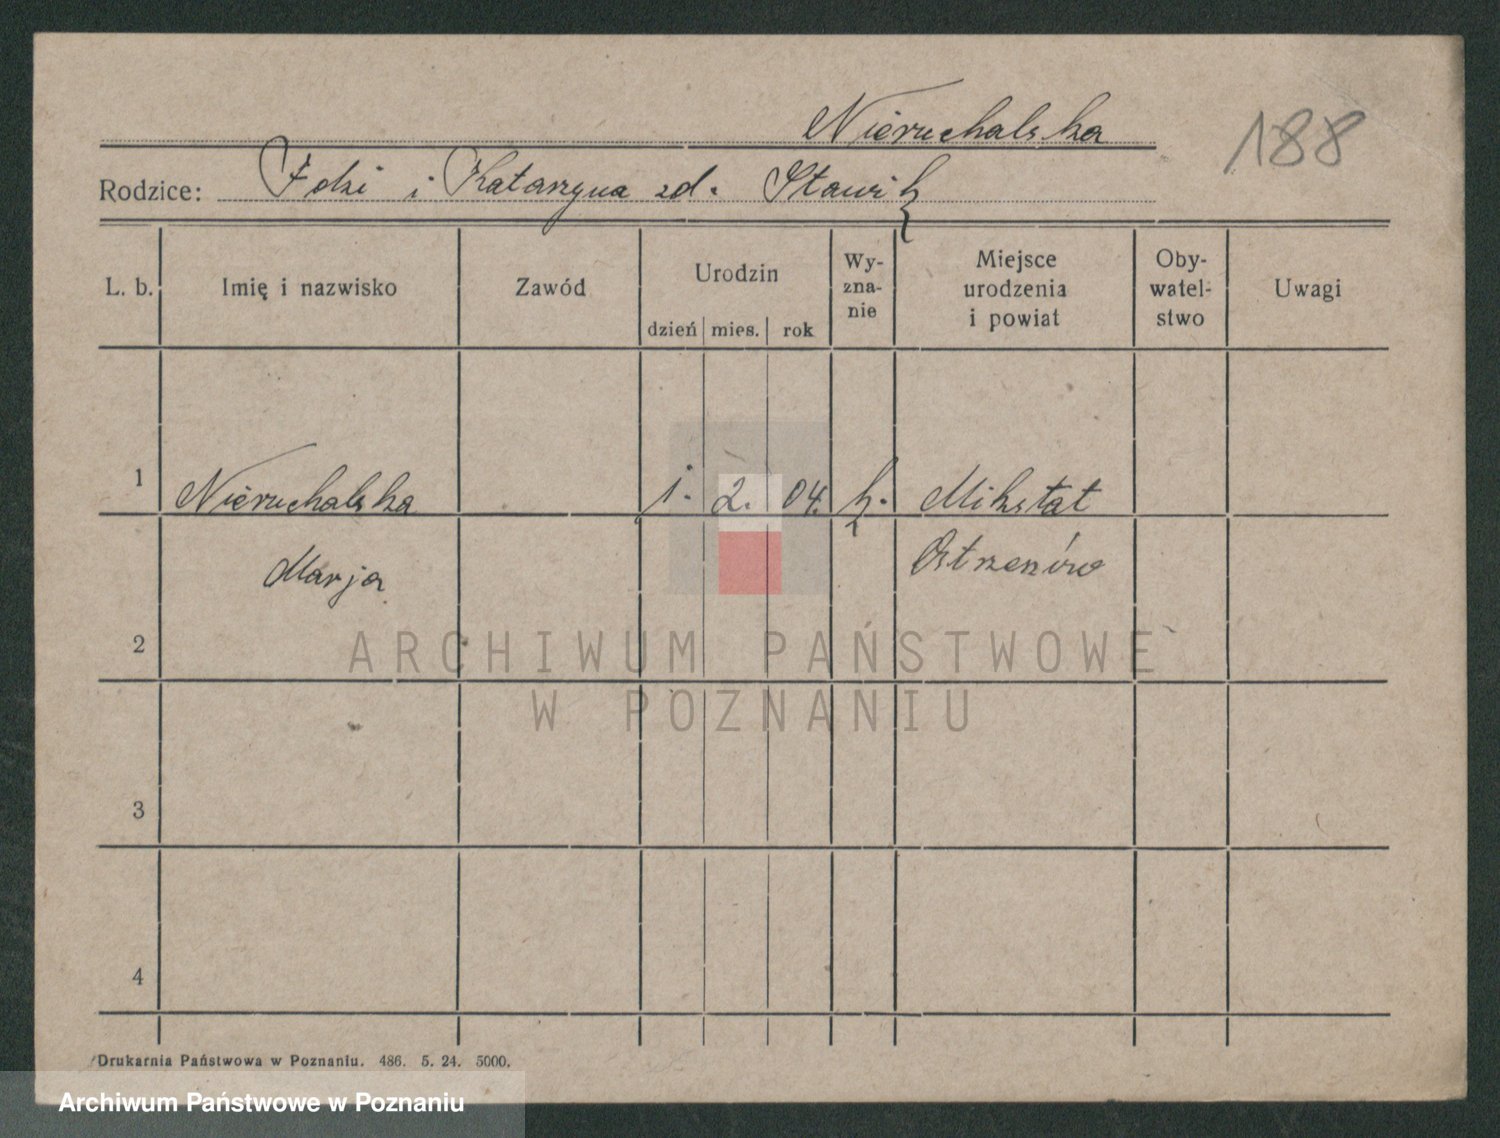 Nieruchalska
188
Rodzice: Idzi i Katarzyna zd. Stawik
L. b. Imię i nazwisko Zawód Urodzin dzień mies. rok Wy-zna-nie Miejsce urodzenia i powiat Oby-watel-stwo Uwagi
1 Nieruchalska 1. 2. 04. k. Mikstat
Marja Ostrzeszów
2
ARCHIWUM PAŃSTWOWE
W POZNANIU
3
4
Drukarnia Państwowa w Poznaniu. 486. 5. 24. 5000.
Archiwum Państwowe w Poznaniu